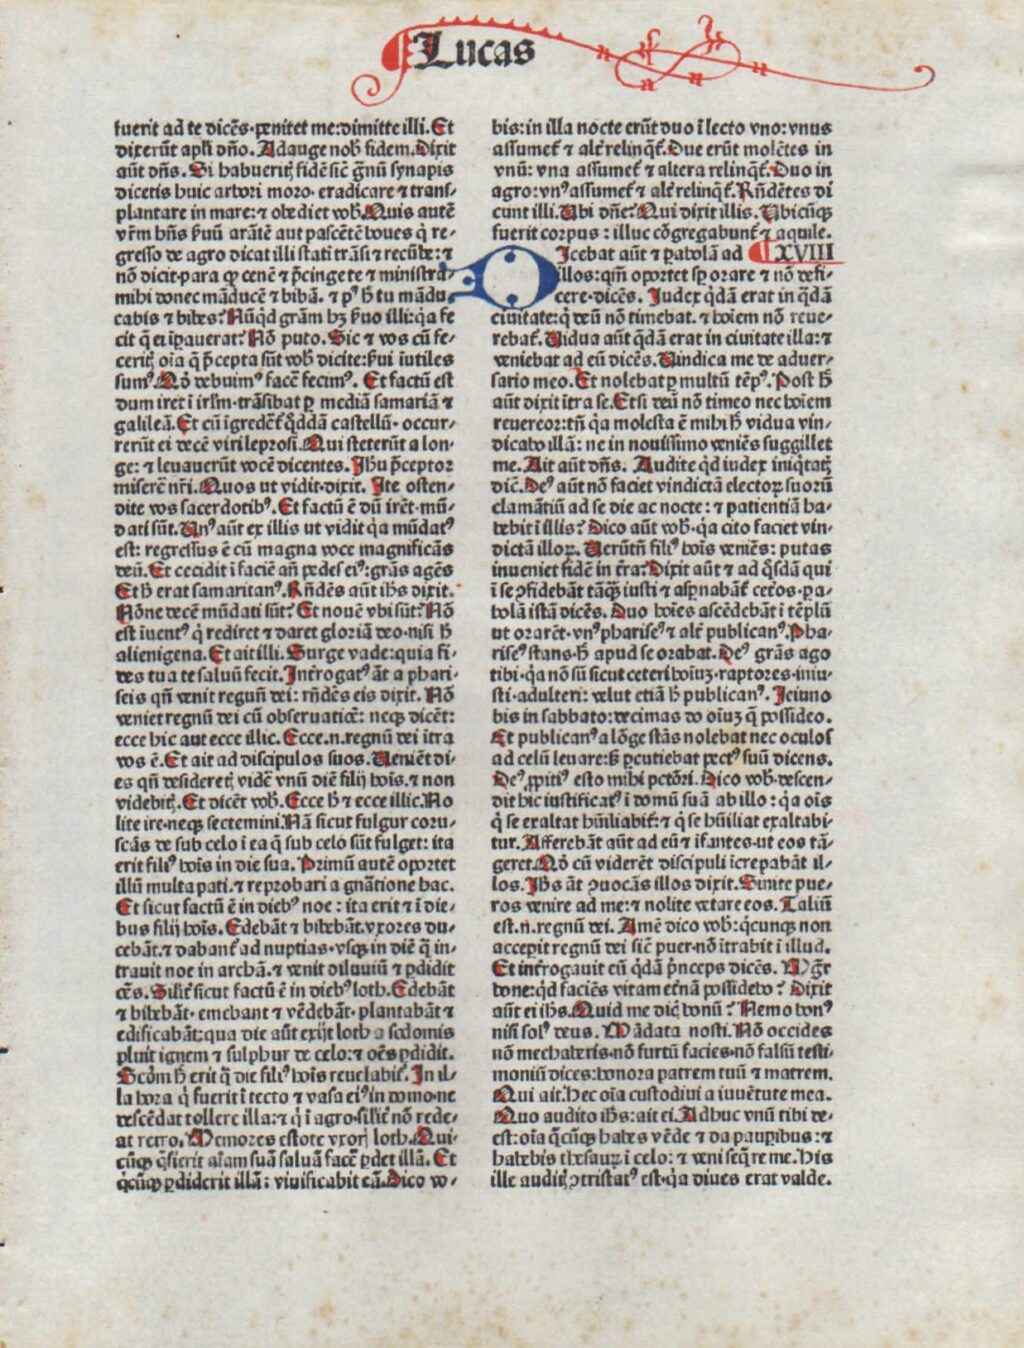 Lucas
fuerit ad te dicēs·penitet me:dimitte illi.Et
dixerūt apli dño.Adauge nob fidem.Dixit
aūt dñs. Si habueritꝭ fidē sic̄ gnū synapis
dicetis huic arbori moro·eradicare ⁊ trans-
plantare in mare:⁊ obediet vob.Quis autē
vr̄m hñs ẜuū arātē aut pascētē boues q̇ re-
gresso de agro dicat illi stati trāsi ⁊ recūbe:⁊
nō dicit·para qꝫ cenē ⁊ p̄cinge te ⁊ ministra
mihi donec māducē ⁊ bibā. ⁊ pꝰ h̄ tu mādu
cabis ⁊ bibes?Nūqd grām hꝫ ẜuo illi:qa fe
cit q̄ ei īpauerat?Nō puto.Sic ⁊ vos cū fe-
ceritꝭ oīa q̄ p̄cepta sūt vob dicite:ẜui īutiles
sumꝰ.Qd debuimꝰ facē fecimꝰ. Et factū est
dum iret ī irlm·trāsibat ꝑ mediā samariā ⁊
galileā.Et cū īgrederēt q̇ddā castellū· occur-
rerūt ei decē viri leprosi.Qui steterūt a lon-
ge: ⁊ leuauerūt vocē dicentes.Ihu p̄ceptor
miserē nr̄i.Quos ut vidit·dixit. Ite osten-
dite vos sacerdotibꝰ.Et factū ē dū irēt·mū-
dati sūt.Unꝰ aūt ex illis ut vidit qa mūdatꝰ
est: regressus ē cū magna voce magnificās
deū.Et cecidit ī faciē añ pedes eiꝰ:grās agēs
Et h̄ erat samaritanꝰ.Rñdēs aūt ihs dixit.
Nōne decē mūdati sūt?Et nouē vbi sūt?Nō
est īuentꝰ q̇ rediret ⁊ daret gloriā deo·nisi h̄
alienigena.Et ait illi.Surge vade:quia fi-
des tua te saluū fecit.Int̄rogatꝰ āt a phari-
seis qñ venit regnū dei: rñdēs eis dixit. Nō
veniet regnū dei cū obseruatiōē: neqꝫ dicēt:
ecce hic aut ecce illic.Ecce.n.regnū dei ītra
vos ē.Et ait ad discipulos suos.Uenient di-
es qñ desideretꝭ vidē vnū diē filij hoīs·⁊ non
videbitꝭ.Et dicēt vob.Ecce h̄ ⁊ ecce illic.No
lite ire·neqꝫ sectemini.Nā sicut fulgur coru-
scās de sub celo ī ea q̄ sub celo sūt fulget: ita
erit filiꝰ hoīs in die sua. Primū autē oportet
illū multa pati·⁊ reprobari a gnātione hac.
Et sicut factū ē in diebꝰ noe : ita erit ⁊ ī die-
bus filij hoīs.Edebāt ⁊ bibebāt·vxores du-
cebāt·⁊ dabant ad nuptias·vsqꝫ in diē q̄ in-
trauit noe in archā·⁊ venit diluuiū ⁊ ꝑdidit
oēs.Silit̄ sicut factū ē in diebꝰ loth.Edebāt
⁊ bibebāt· emebant ⁊ vēdebāt· plantabāt ⁊
edificabāt:qua die aūt exijt loth a sodomis
pluit ignem ⁊ sulphur de celo:⁊ oēs ꝑdidit.
Scdm h̄ erit q̄ die filiꝰ hoīs reuelabit̄. In il-
la hora q̇ fuerit ī tecto ⁊ vasa eiꝰ in domo·ne
descēdat tollere illa:⁊ q̇ ī agro·silit̄ nō rede-
at retro.Memores estote vxorꝭ loth.Qui-
cūqꝫ q̄sierit aīam suā saluā facē ꝑdet illā. Et
q̇cūqꝫ ꝑdiderit illā: viuificabit eā.Dico vo-
bis:in illa nocte erūt duo ī lecto vno:vnus
assumet̄ ⁊ alt̄ relinqet̄.Due erūt molētes in
vnū: vna assumet̄ ⁊ altera relinqet̄.Duo in
agro:vnꝰ assumet̄ ⁊ alt̄ relinqet̄.Rñdētes di
cunt illi.Ubi dñe?Qui dixit illis.Ubicūqꝫ
fuerit corpus : illuc cōgregabunt̄ ⁊ aquile.
Dicebat aūt ⁊ ꝑabolā ad XVIII
illos:qm̄ oportet sꝑ orare ⁊ nō defi-
cere·dicēs. Iudex qdā erat in qdā
ciuitate:q̇ deū nō timebat·⁊ hoīem nō reue-
rebat̄.Uidua aūt qdā erat in ciuitate illa:⁊
veniebat ad eū dicēs.Uindica me de aduer-
sario meo.Et nolebat ꝑ multū tēpꝰ.Post h̄
aūt dixit ītra se.Etsi deū nō timeo nec hoīem
reuereor:tñ qa molesta ē mihi h̄ vidua vin-
dicabo illā: ne in nouissimo veniēs suggillet
me. Ait aūt dñs. Audite qd iudex iniqtatꝭ
dic̄.Deꝰ aūt nō faciet vindictā electoꝝ suorū
clamātiū ad se die ac nocte: ⁊ patientiā ha-
bebit ī illis?Dico aūt vob·qa cito faciet vin-
dictā illoꝝ. Uerūtñ filiꝰ hoīs veniēs: putas
inueniet fidē in t̄ra?Dixit aūt ⁊ ad q̇sdā qui
ī se ꝯfidebāt tāqꝫ iusti ⁊ aspnabāt̄ cet̄os·ꝑa-
bolā istā dicēs. Duo hoīes ascēdebāt ī tēplū
ut orarēt·vnꝰ phariseꝰ ⁊ alt̄ publicanꝰ.Pha-
riseꝰ stans·h̄ apud se orabat.Deꝰ grās ago
tibi·qa nō sū sicut ceteri hoīuꝫ·raptores·iniu-
sti·adulteri: velut etiā h̄ publicanꝰ. Ieiuno
bis in sabbato:decimas do oīuꝫ q̄ possideo.
Et publicanꝰ a lōge stās nolebat nec oculos
ad celū leuare:ß ꝑcutiebat pectꝰ suū dicens.
Deꝰ ꝓpitiꝰ esto mihi pctōri.Dico vob·descen-
dit hic iustificatꝰ ī domū suā ab illo: qa oīs
q̇ se exaltat hūiliabit̄:⁊ q̇ se hūiliat exaltabi-
tur.Afferebāt aūt ad eū ⁊ īfantes·ut eos tā-
geret.Qd cū viderēt discipuli īcrepabāt il-
los.Ihs āt ꝯuocās illos dixit.Sinite pue-
ros venire ad me:⁊ nolite vetare eos.Taliū
est.n.regnū dei. Amē dico vob:q̇cunqꝫ non
acceperit regnū dei sic̄ puer·nō ītrabit ī illud.
Et int̄rogauit eū qdā p̄nceps dicēs. Mgr̄
bone:qd faciēs vitam et̄nā possidebo? Dixit
aūt ei ihs.Quid me dicꝭ bonū?Nemo bonꝰ
nisi solꝰ deus. Mādata nosti.Nō occides
nō mechaberis·nō furtū facies·nō falsū testi-
moniū dices:honora patrem tuū ⁊ matrem.
Qui ait.Hec oīa custodiui a iuuētute mea.
Quo audito ihs:ait ei.Adhuc vnū tibi de-
est:oīa q̄cūqꝫ habes vēde ⁊ da pauperibus:⁊
habebis thesauꝝ ī celo: ⁊ veni seqre me.His
ille auditꝭ ꝯtristatꝰ est·qa diues erat valde.